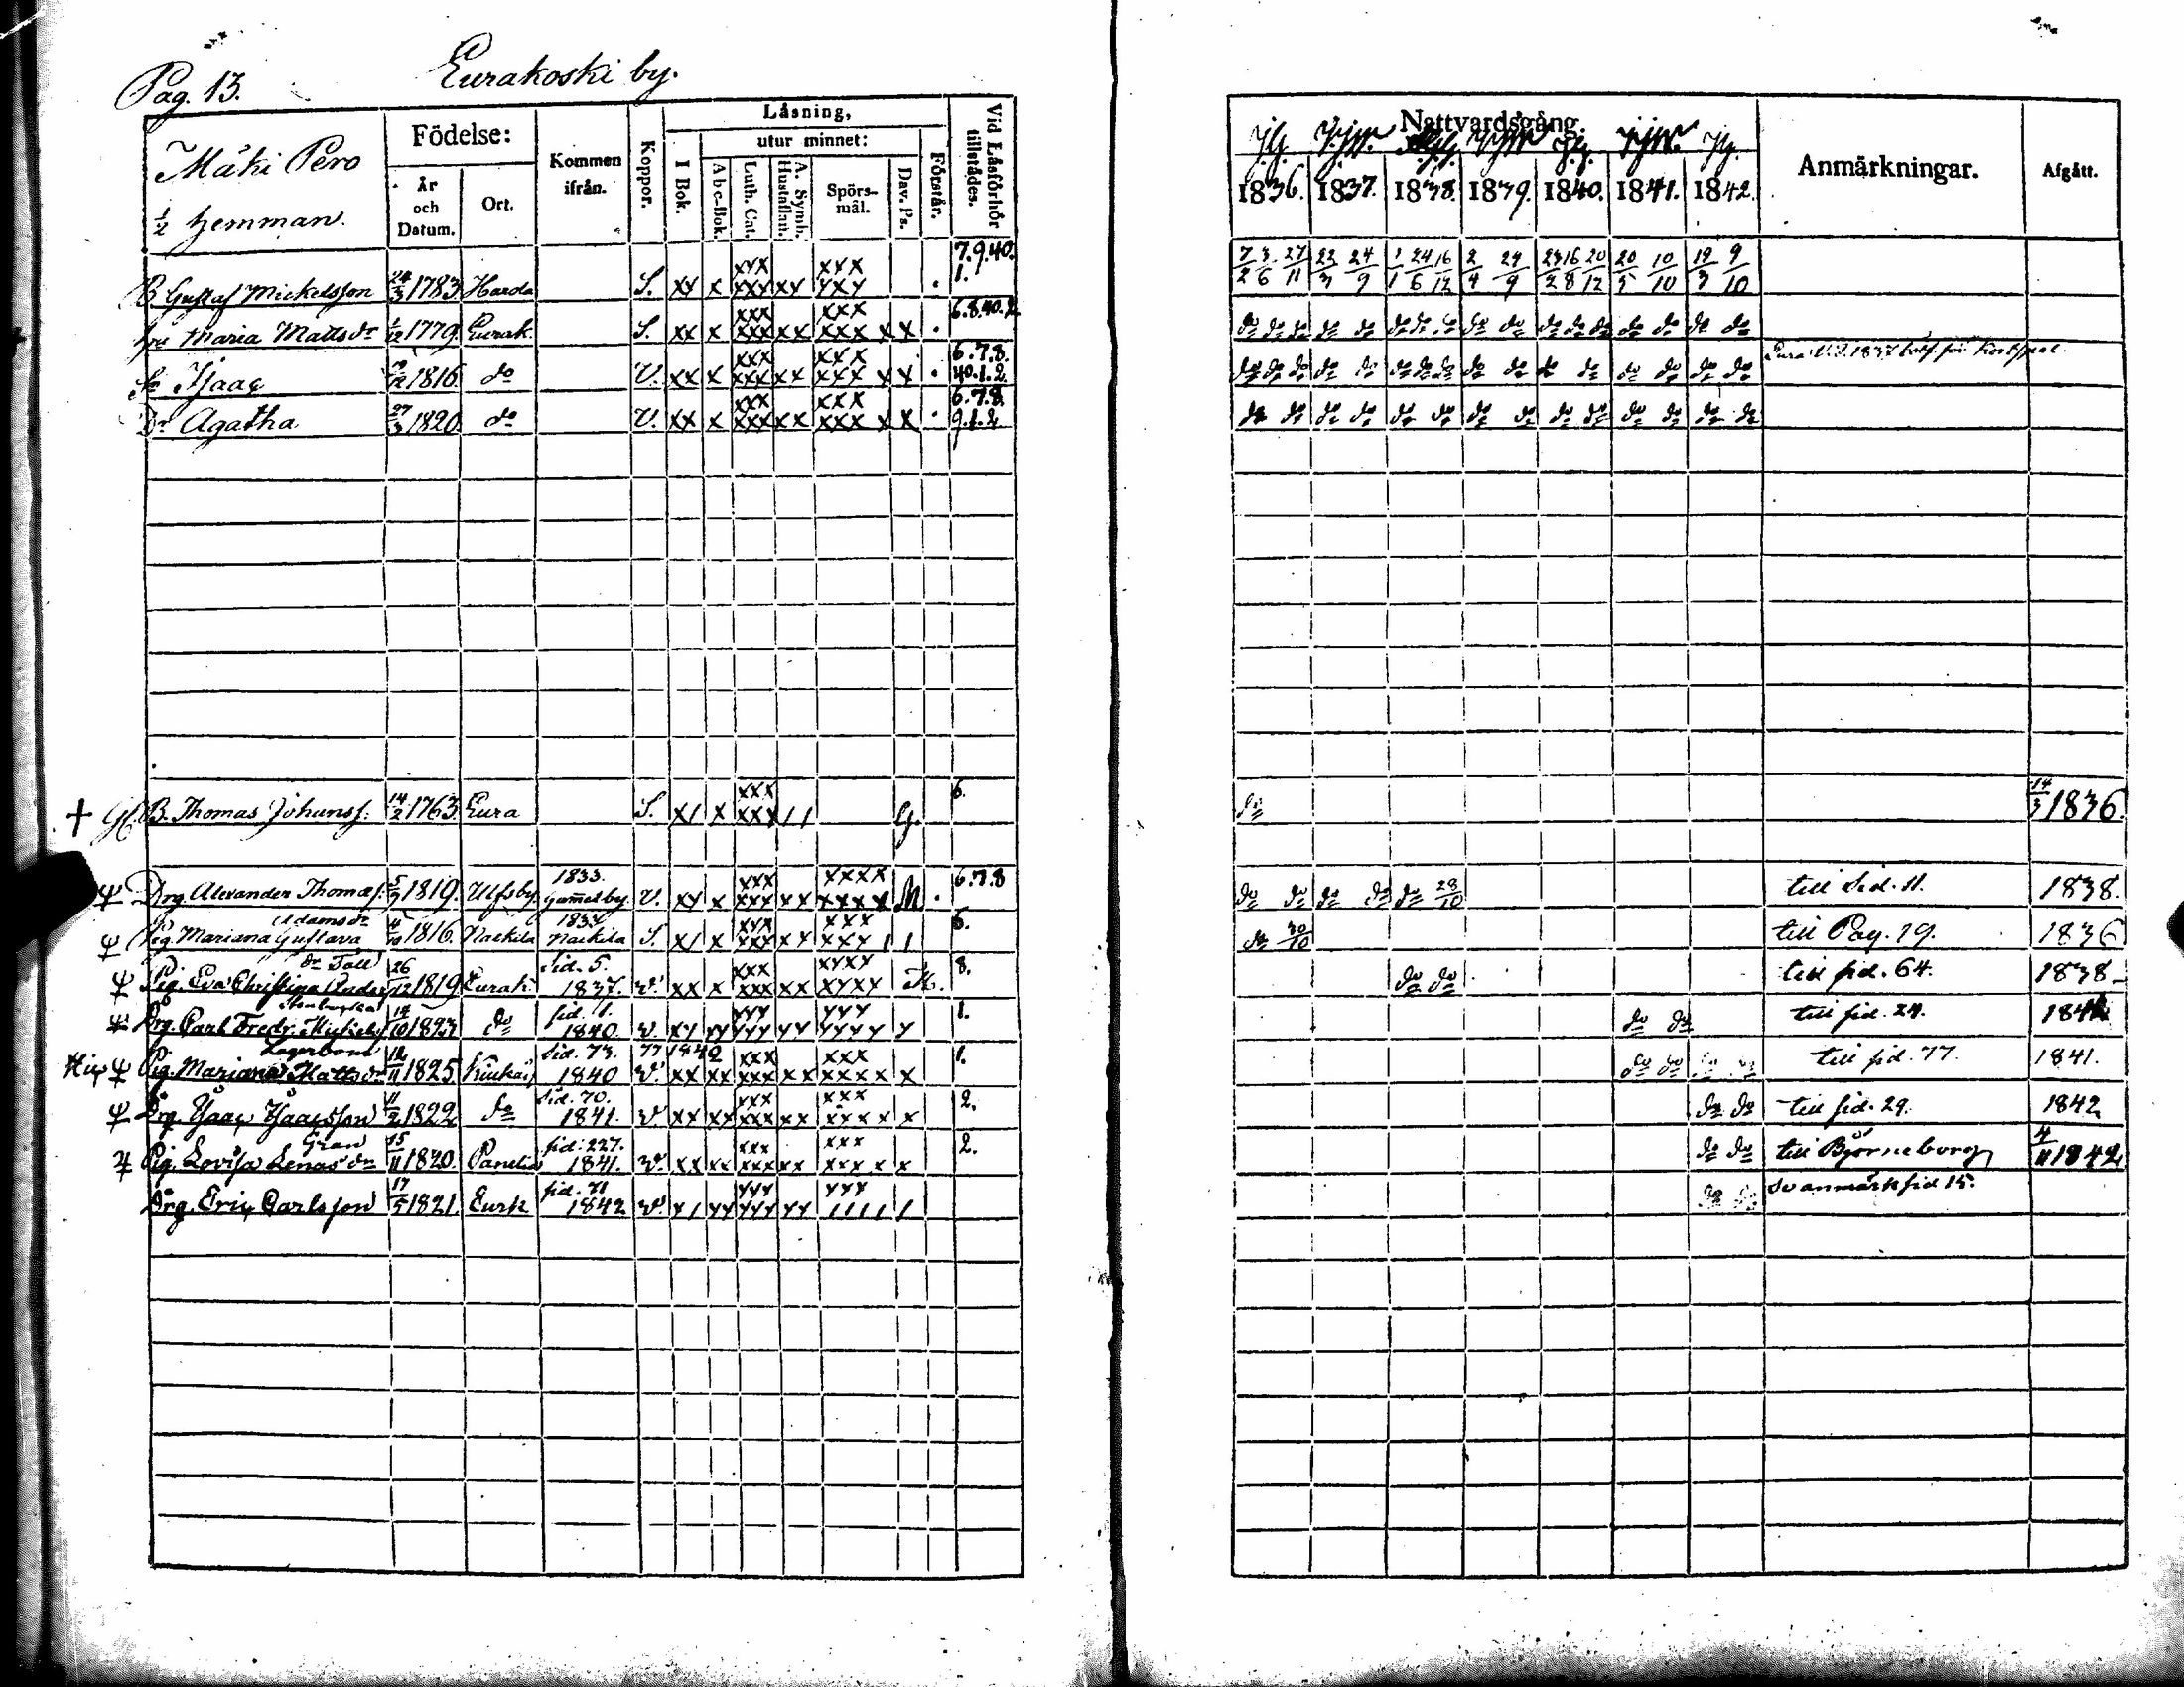 Pag. 13. Eurakoski by.
Mäki Pero
1/2 hemman.
Födelse:
År och Datum.
Ort.
Kommen ifrån.
Koppor.
Läsning,
I Bok.
utur minnet:
Abc-Bok.
Luth. Cat.
A. Symb. Hustaflan.
Spörs-mål.
Dav. Ps.
Förstår.
Vid Läsförhör tillstädes.
Nattvardsgång.
1836. 1837. 1838. 1839. 1840. 1841. 1842.
Anmärkningar.
Afgått.
B Gustaf Mickelsson 24/3 1783 Harda S. xx x xxx xxx xx xxx xxx . 7.9.40. 1. 7/2 3/6 27/11 22/3 24/9 1/1 24/6 16/12 2/4 29/9 23/2 16/8 20/12 20/5 10/10 19/3 9/10
Maria Mattsdr 1/12 1779. Eurak. S. xx x xxx xxx xx xxx xxx x x . 6.8.40.2. do do do do do do do do do do do do do do do do do
Isaac 1816 do V. xx x xxx xxx xx xxx xxx x x . 6.7.8. 40.1.2. do do do do do do do do do do do do do do do do
Dr Agatha 27/3 1820 do V. xx x xxx xxx xx xxx xxx x x . 6.7.8. 9.1.2 do do do do do do do do do do do do do do
+ B. Thomas Johanss. 14/2 1763 Eura S. x/ x xxx xxx // G. 6. do 14/3 1836.
Drg Alexander Thomæs. 5/9 1819. Ulfsby. 1833. Gam̄elby. V. xx x xxx xxx xx xxxx xxxx N . 6.7.8 do do do do do 28/10 till Sid. 11. 1838.
Pig. Mariana Gustava Adamsdr 1816. Nackila 1834 Nackila S. x/ x xxx xxx xx xxx xxx / / 6. do 30/10 till Pag. 19. 1836
Pig. Eva Christina dr Tall 26/12 1819 Eurak Sid. 5. 1837. V. xx x xxx xxx xx xxxx xxxx 8. do do till sid. 64. 1838
Drg. Carl Fredr. 14/10 1823 do sid. 11. 1840. 1. do do till sid. 24.
Pig. Mariana Mattsdr Lagerbom 12/11 1825 Sid. 73. 1840 77 1842 xx xx xxx xxx xx xxx xxxx x 1. do do till sid. 77. 1841.
Drg. Isaac Isaacsson 11/2 1822 do Sid. 70. 1841. xx xx xxx xxx xx xxx xxxx x 2. do do till sid. 29. 1842
Pig. Lovisa Lenasdr Gran 15/11 1820. Panelia sid. 227. 1841. xx xx xxx xxx xx xxx xxxx x 2. do do till Björneborg 4/11 1842
Drg. Eric Carlsson 17/5 1821. Eurk sid. 71 1842 do do anmärk sid 15.